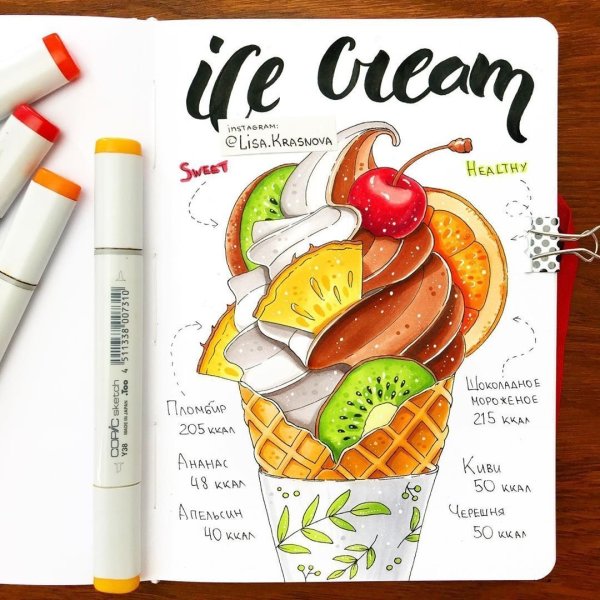 ice cream
INSTAGRAM:
@LISA.KRASNOVA
SWEET
HEALTHY
Пломбир
205 ккал
Ананас
48 ккал
Апельсин
40 ккал
Шоколадное
мороженое
215 ккал
Киви
50 ккал
Черешня
50 ккал
COPIC sketch
MADE IN JAPAN
.Too
Y38
4 511338 007310